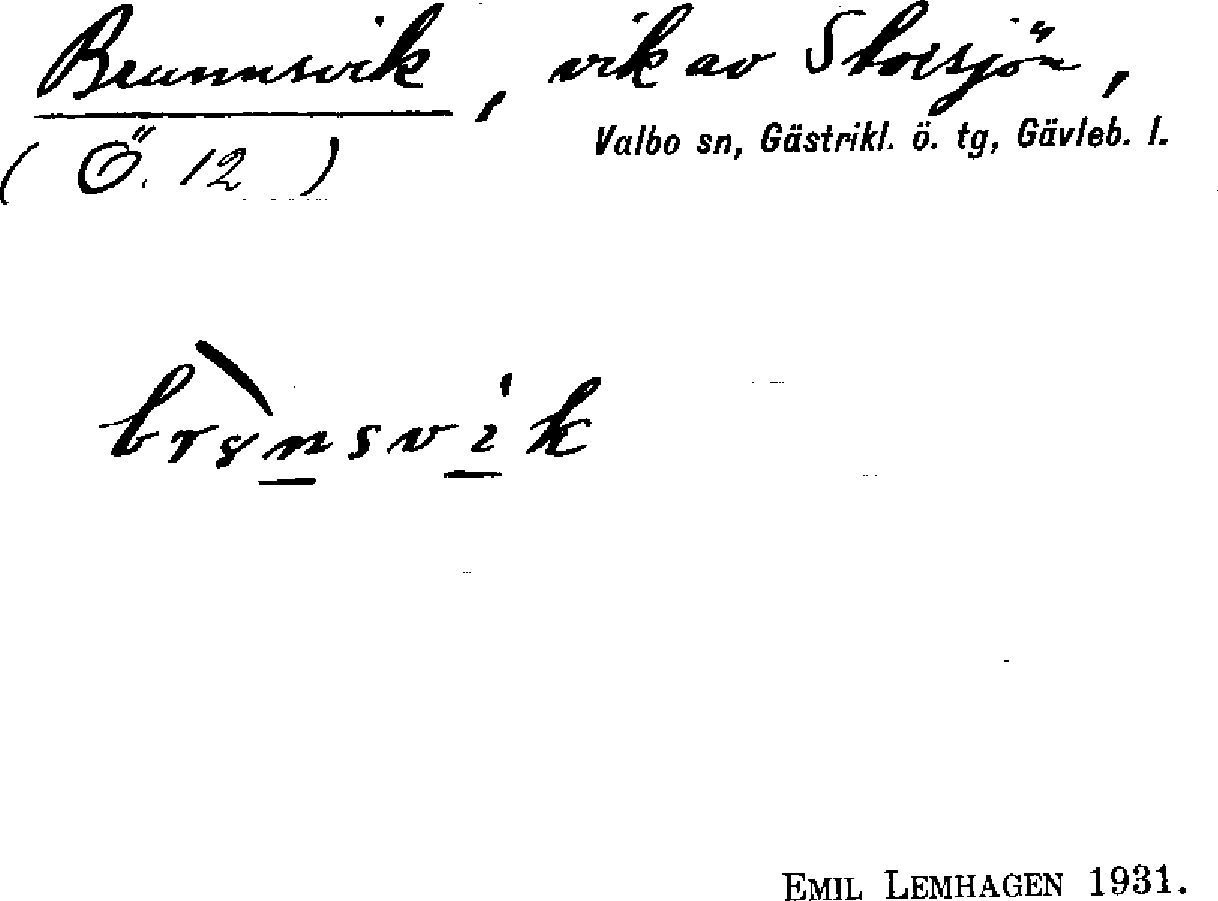 Brunnsvik, vik av Storsjön,
(Ö. 12)
Valbo sn, Gästrikl. ö. tg, Gävleb. l.
EMIL LEMHAGEN 1931.